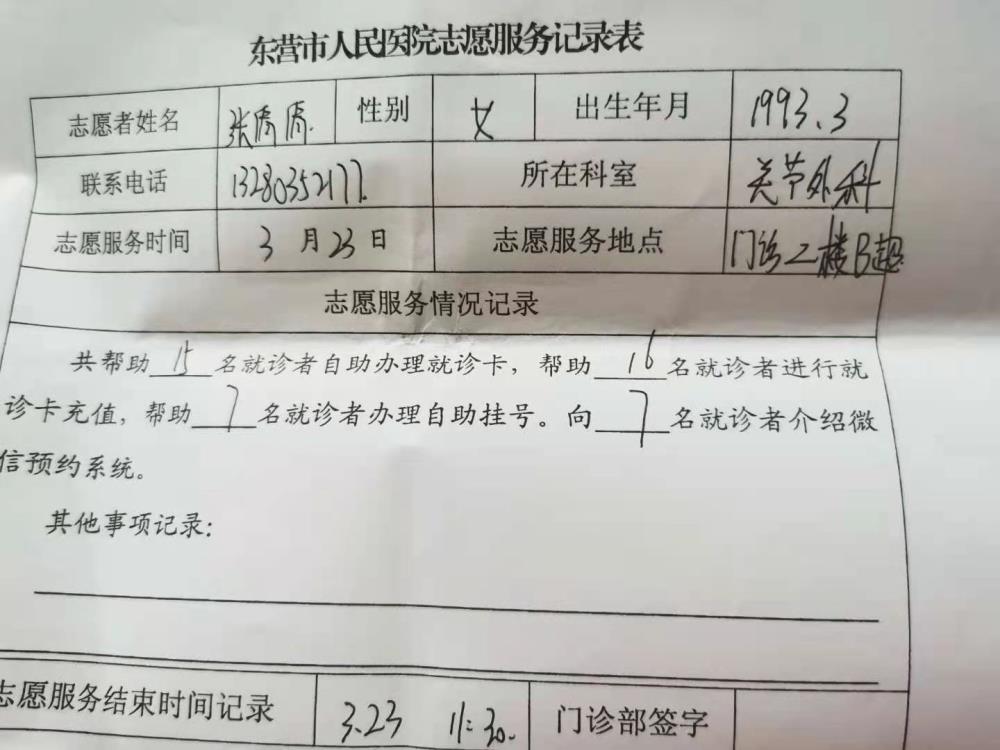 东营市人民医院志愿服务记录表
志愿者姓名 张 性别 女 出生年月 1993.3
联系电话 13280352177. 所在科室 关节外科
志愿服务时间 3月23日 志愿服务地点 门诊二楼B超
志愿服务情况记录
共帮助 15 名就诊者自助办理就诊卡，帮助 16 名就诊者进行就
诊卡充值，帮助 7 名就诊者办理自助挂号。向 7 名就诊者介绍微
信预约系统。
其他事项记录：
志愿服务结束时间记录 3.23 11:30. 门诊部签字